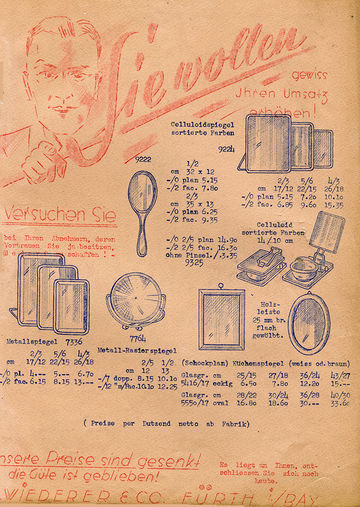 Sie wollen
gewiss
Ihren Umsatz
erhöhen!
Celluloidspiegel
sortierte Farben
9224
9222
1/2
cm 32 x 12
-/0 plan 5.15
-/2 fac. 7.80
2/3
cm 35 x 13
-/0 plan 6.25
-/2 fac. 9.35
-/0 2/5 plan 14.90
-/2 2/5 fac. 16.30
ohne Pinsel./.3.35
9325
2/3 5/6 4/3
cm 17/12 22/15 26/18
-/0 plan 5.15 7.20 10.10
-/2 fac. 6.85 9.60 15.35
Versuchen Sie
bei Ihren Abnehmern, deren
Vertrauen Sie ja besitzen,
schaffen! -
Celluloid
sortierte Farben
14/10 cm
Holz-
leiste
25 mm br.
flach
gewölbt.
Metallspiegel 7336
2/3 5/6 4/3
cm 17/12 22/15 26/18
-/0 pl. 4.-- 5.-- 6.70
-/2 fac. 6.15 8.15 13.--
7764
Metall-Rasierspiegel
2/5 1/2
cm 12 13
-/7 dopp. 8.15 10.10
-/12 "m/Ha.10.10 12.25
(Schockplan) Küchenspiegel (weiss od.braun)
Glasgr. cm 25/15 27/18 36/24 43/27
5416/17 eckig 6.50 7.80 12.20 15.--
Glasgr. cm 28/22 30/24 36/28 40/30
5550/17 oval 16.80 18.60 30.-- 33.60
( Preise per Dutzend netto ab Fabrik)
nsere Preise sind gesenkt
die Güte ist geblieben!
Es liegt an Ihnen, ent-
schliessen Sie sich noch
heute.
WIEDERER & CO. FÜRTH i/BAY